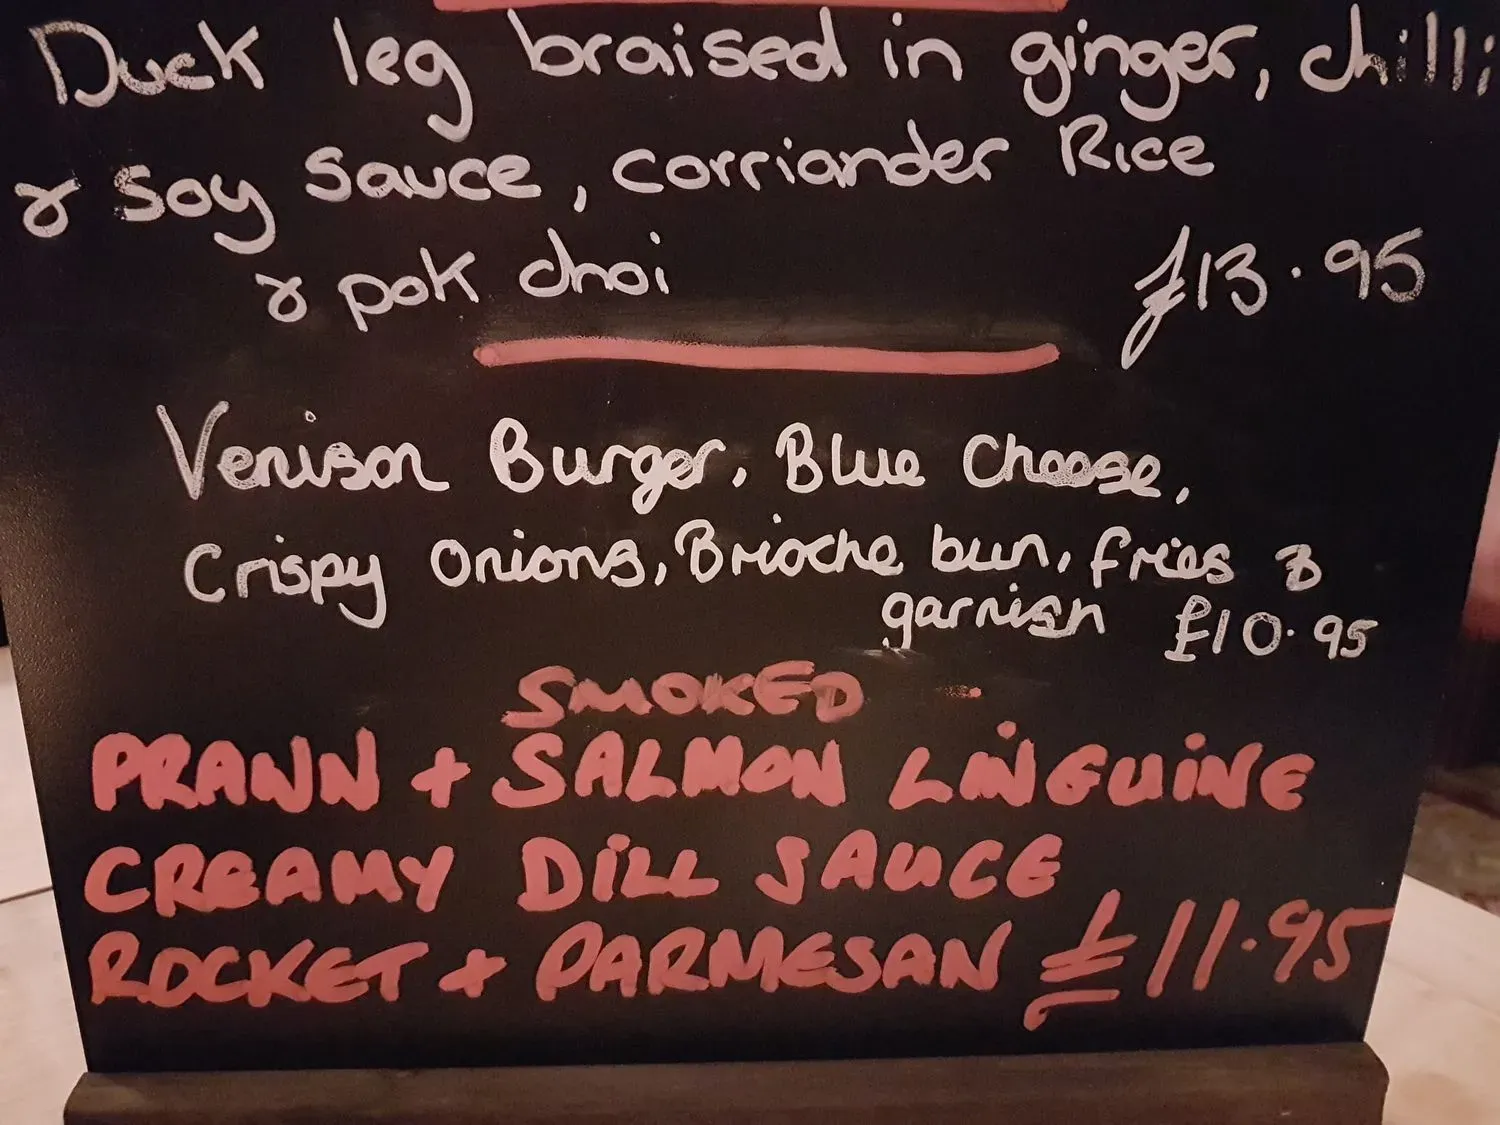 Duck leg braised in ginger, chilli
& soy sauce, corriander Rice
& pok choi £13.95
Venison Burger, Blue Cheese,
Crispy Onions, Brioche bun, fries &
garnish £10.95
SMOKED
PRAWN + SALMON LINGUINE
CREAMY DILL SAUCE
ROCKET + PARMESAN £11.95